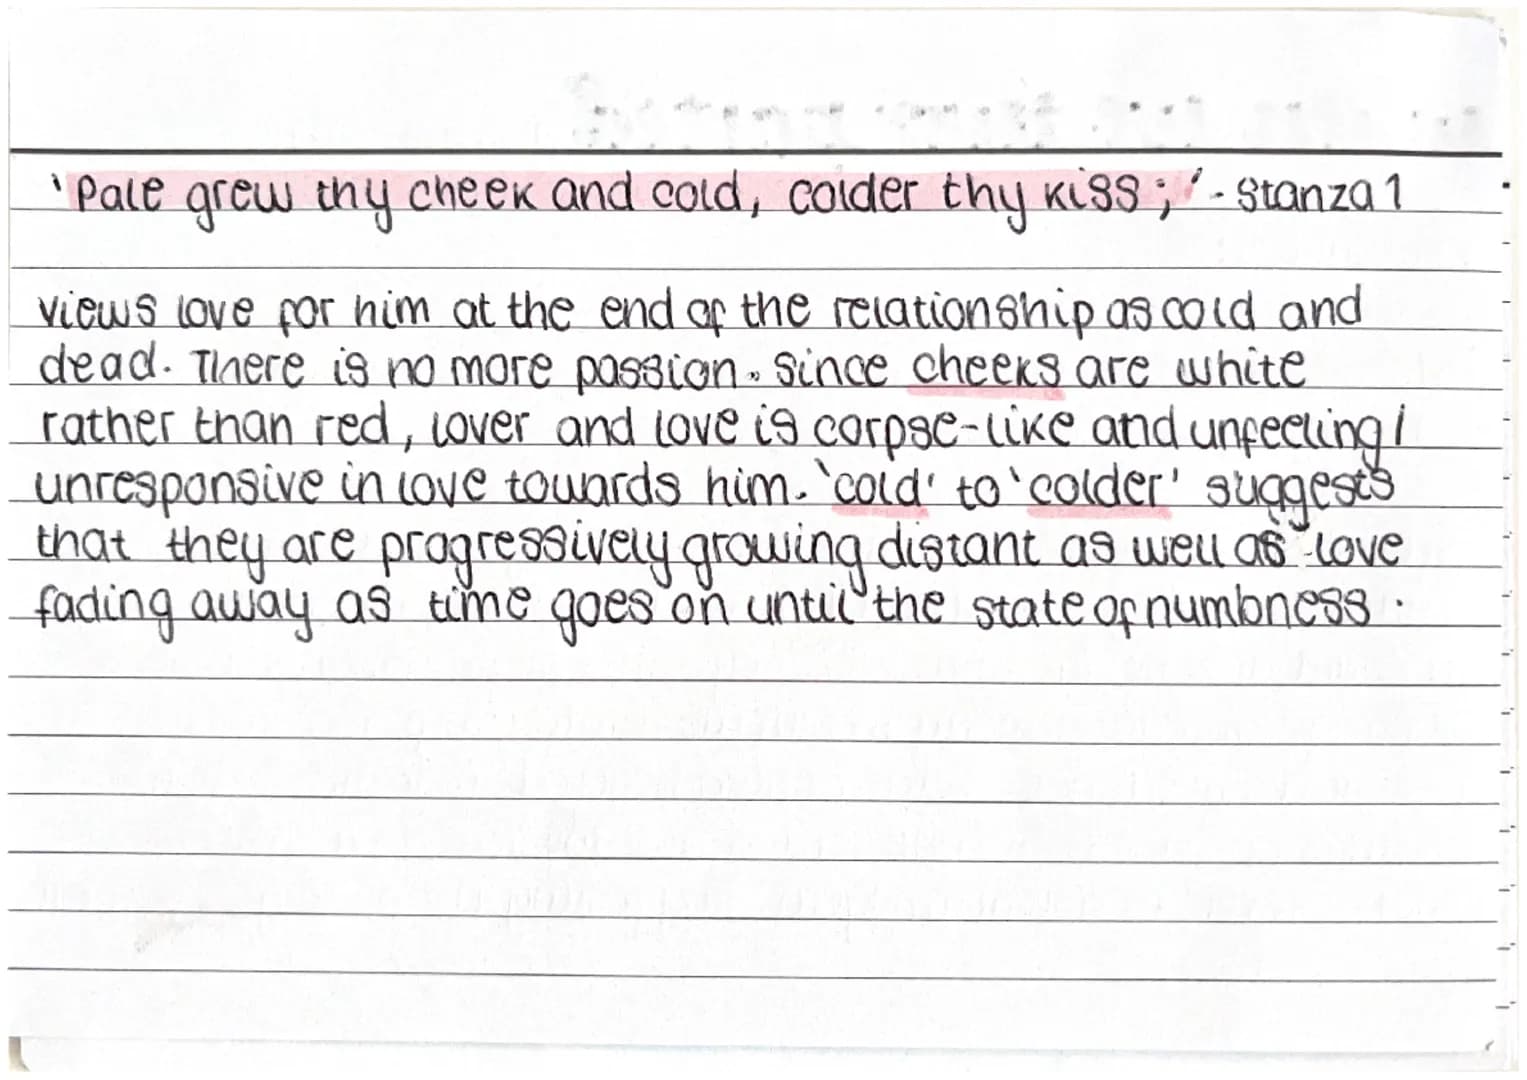 'Pale grew thy cheek and cold, colder thy kiss;' - Stanza 1
views love for him at the end of the relationship as cold and
dead. There is no more passion. Since cheeks are white
rather than red, lover and love is corpse-like and unfeeling/
unresponsive in love towards him. 'cold' to 'colder' suggests
that they are progressively growing distant as well as love
fading away as time goes on until the state of numbness.